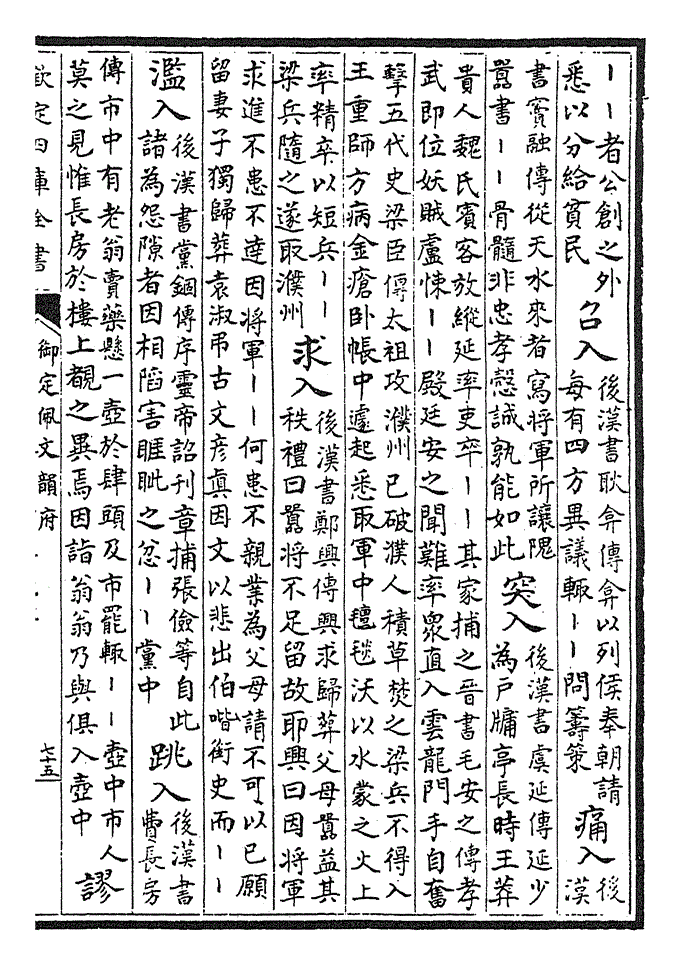 丨丨者公創之外
悉以分給貧民
召入
後漢書耿弇傳弇以列侯奉朝請
每有四方異議輒丨丨問籌策
痛入
後
漢
書竇融傳從天水來者寫將軍所讓隗
囂書丨丨骨髓非忠孝慤誠孰能如此
突入
後漢書虞延傳延少
為戶牖亭長時王莽
貴人魏氏賓客放縱延率吏卒丨丨其家捕之晉書毛安之傳孝
武即位妖賊盧悚丨丨殿廷安之聞難率衆直入雲龍門手自奮
擊五代史梁臣傳太祖攻濮州已破濮人積草焚之梁兵不得入
王重師方病金瘡臥帳中遽起悉取軍中氊毯沃以水蒙之火上
率精卒以短兵丨丨
梁兵隨之遂取濮州
求入
後漢書鄭興傳興求歸葬父母囂益其
秩禮曰囂將不足留故耶興曰因將軍
求進不患不達因將軍丨丨何患不親業為父母請不可以已願
留妻子獨歸葬袁淑弔古文彥真因文以悲出伯喈銜史而丨丨
濫入
後漢書黨錮傳序靈帝詔刊章捕張儉等自此
諸為怨隙者因相陷害睚眦之忿丨丨黨中
跳入
後漢書
費長房
傳市中有老翁賣藥懸一壺於肆頭及市罷輒丨丨壺中市人
莫之見惟長房於樓上覩之異焉因詣翁翁乃與俱入壺中
謬
欽定四庫全書
御定佩文韻府
七十五